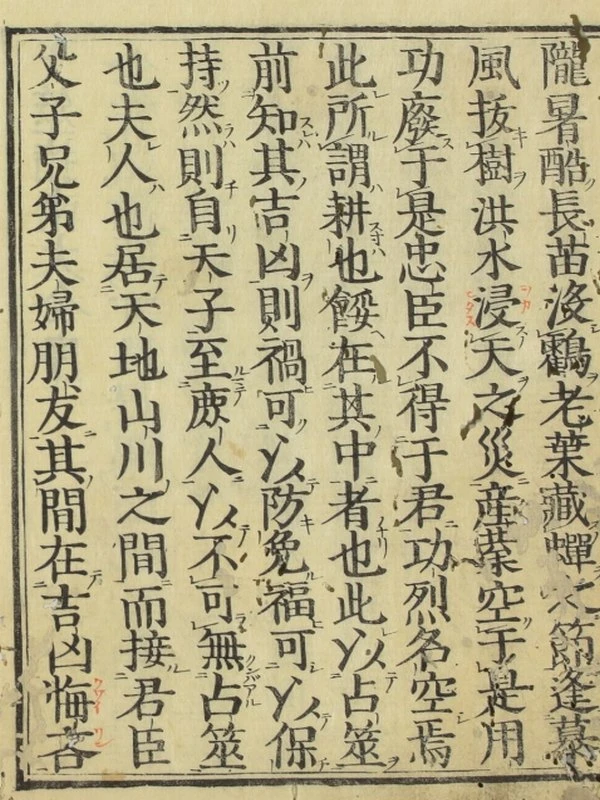 隴暑酷長苗没鸛老葉藏蟬之節逢暴
風抜樹洪水浸天之災産業空于是用
功廢于是忠臣不得于君功烈名空焉
此所謂耕也餒在其中者也此以占筮
前知其吉凶則禍可以防免福可以保
持然則自天子至庶人以不可無占筮
也夫人也居天地山川之間而接君臣
父子兄弟夫婦朋友其間在吉凶悔吝